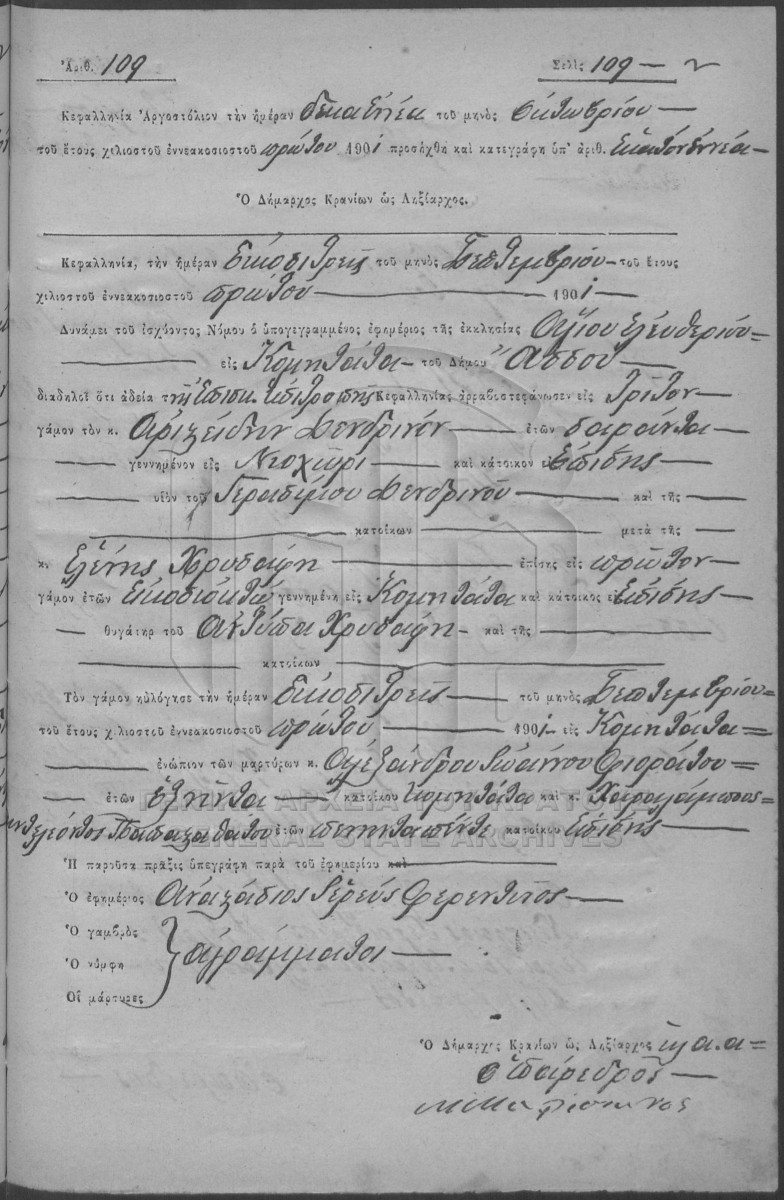 Ἀριθ. 109
Σελὶς 109
Κεφαλληνία Ἀργοστόλιον τὴν ἡμέραν δεκαεννέα τοῦ μηνὸς Ὀκτωβρίου
τοῦ ἔτους χιλιοστοῦ ἐννεακοσιοστοῦ πρώτου 1901 προσήχθη καὶ κατεγράφη ὑπ' ἀριθ. ἑκατὸν ἐννέα
Ὁ Δήμαρχος Κρανίων ὡς Ληξίαρχος.
Κεφαλληνία, τὴν ἡμέραν εἰκοσιτρεῖς τοῦ μηνὸς Σεπτεμβρίου τοῦ ἔτους
χιλιοστοῦ ἐννεακοσιοστοῦ πρώτου 1901
Δυνάμει τοῦ ἰσχύοντος Νόμου ὁ ὑπογεγραμμένος ἐφημέριος τῆς ἐκκλησίας Ἁγίου Ἐλευθερίου
εἰς Κομητάτα τοῦ Δήμου Ἄσσου
διαδηλοῖ ὅτι ἀδεία τῆς Ἐπισκ. Ἐπιτροπῆς Κεφαλληνίας ἀρραβωστεφάνωσεν εἰς τρίτον
γάμον τὸν κ. Ἀριστείδην Δενδρινόν ἐτῶν σαράντα
γεννημένον εἰς Νεοχώρι καὶ κάτοικον εἰς ἐπίσης
υἱὸν τοῦ Γερασίμου Δενδρινοῦ καὶ τῆς
κατοίκων μετὰ τῆς
κ. Ἑλένης Χρυσάφη ἐπίσης εἰς πρῶτον
γάμον ἐτῶν εἰκοσιοκτώ γεννημένη εἰς Κομητάτα καὶ κάτοικος εἰς ἐπίσης
θυγάτηρ τοῦ Ἀντύπα Χρυσάφη καὶ τῆς
κατοίκων
Τὸν γάμον ηὐλόγησε τὴν ἡμέραν εἰκοσιτρεῖς τοῦ μηνὸς Σεπτεμβρίου
τοῦ ἔτους χιλιοστοῦ ἐννεακοσιοστοῦ πρώτου 1901 εἰς Κομητάτα
ἐνώπιον τῶν μαρτύρων κ. Ἀλεξάνδρου Ἰωάννου Φιοράτου
ἐτῶν ἑξῆντα κατοίκου Κομητάτα καὶ κ. Χαραλάμπους
ἐτῶν πενῆντα πέντε κατοίκου ἐπίσης
ΓΕΝΙΚΑ ΑΡΧΕΙΑ ΤΟΥ ΚΡΑΤΟΥΣ
GENERAL STATE ARCHIVES
Ἡ παροῦσα πρᾶξις ὑπεγράφη παρὰ τοῦ ἐφημερίου καὶ
Ὁ ἐφημέριος Ἀναστάσιος Ἱερεύς Φερεντῖνος
Ὁ γαμβρὸς
Ὁ νύμφη ἀγράμματοι
Οἱ μάρτυρες
Ὁ Δήμαρχος Κρανίων ὡς Ληξίαρχος κ.α.α.
ὁ Πάρεδρος